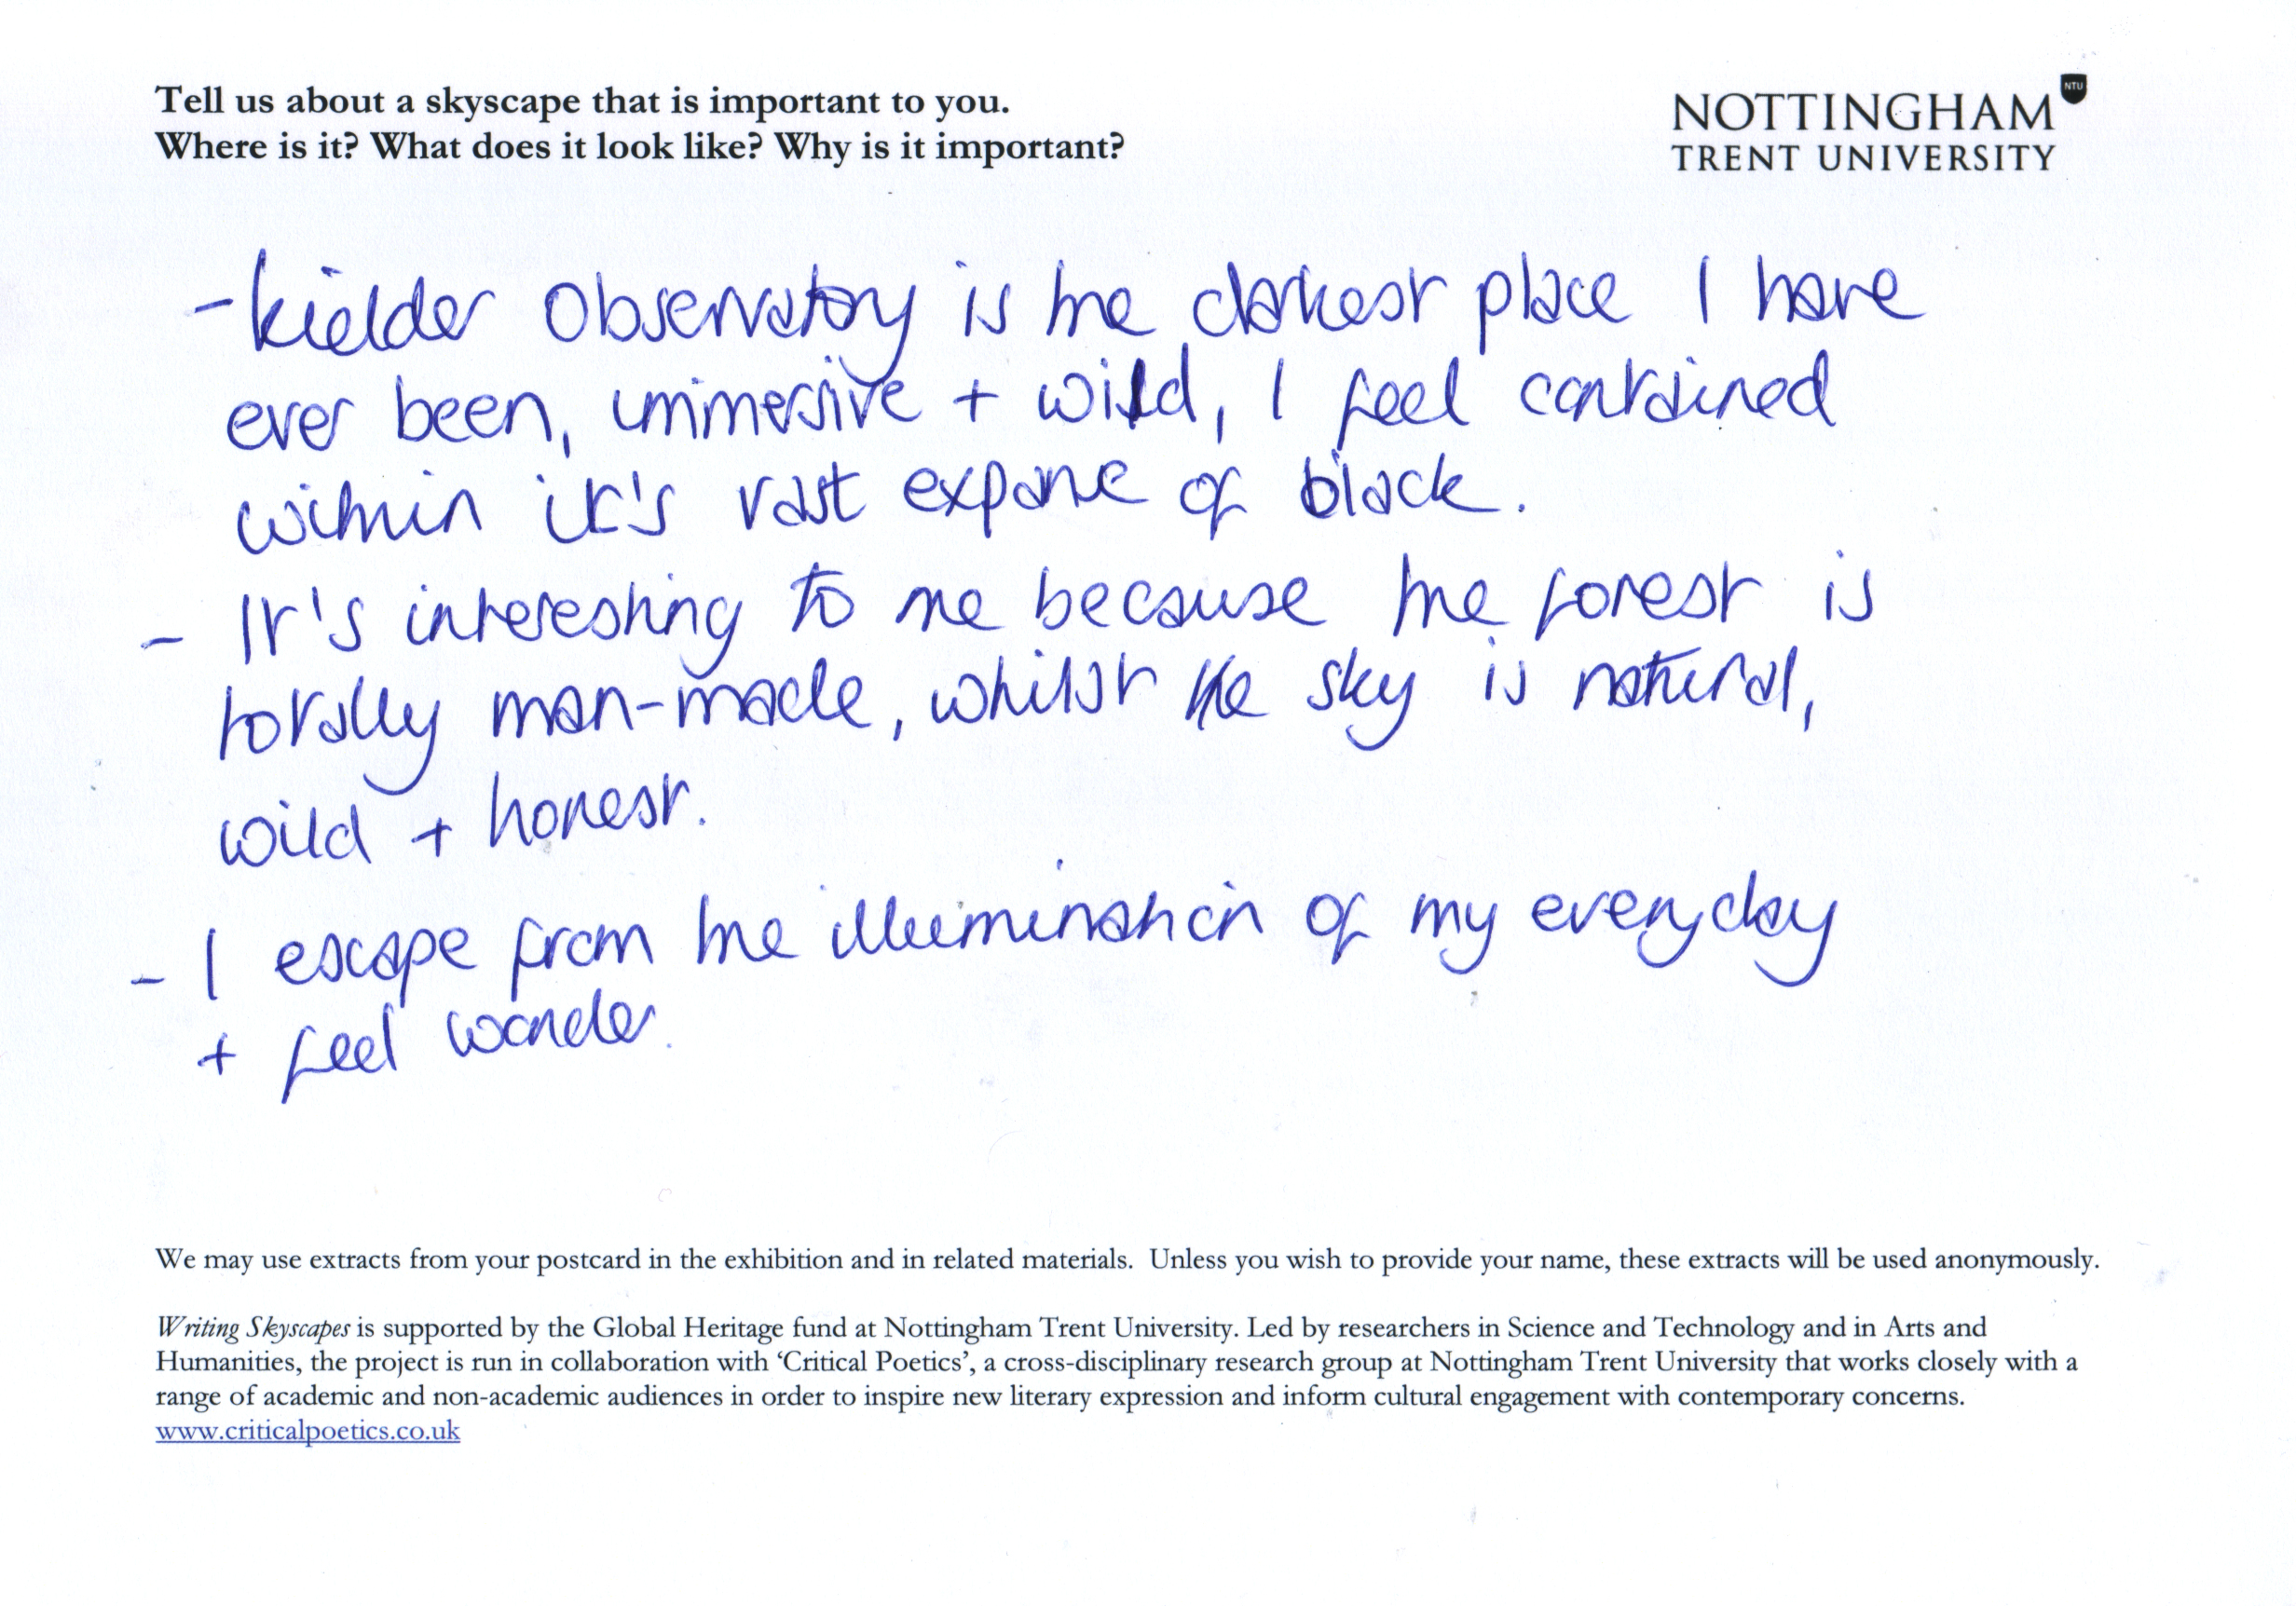 Tell us about a skyscape that is important to you.
Where is it? What does it look like? Why is it important?
NTU
NOTTINGHAM
TRENT UNIVERSITY
- Kielder Observatory is the darkest place I have
ever been, immersive + wild, I feel contained
within it's vast expanse of black.
- It's interesting to me because the forest is
totally man-made, whilst the sky is natural,
wild + honest.
- I escape from the illumination of my everyday
+ feel wonder.
We may use extracts from your postcard in the exhibition and in related materials. Unless you wish to provide your name, these extracts will be used anonymously.
Writing Skyscapes is supported by the Global Heritage fund at Nottingham Trent University. Led by researchers in Science and Technology and in Arts and
Humanities, the project is run in collaboration with ‘Critical Poetics’, a cross-disciplinary research group at Nottingham Trent University that works closely with a
range of academic and non-academic audiences in order to inspire new literary expression and inform cultural engagement with contemporary concerns.
www.criticalpoetics.co.uk